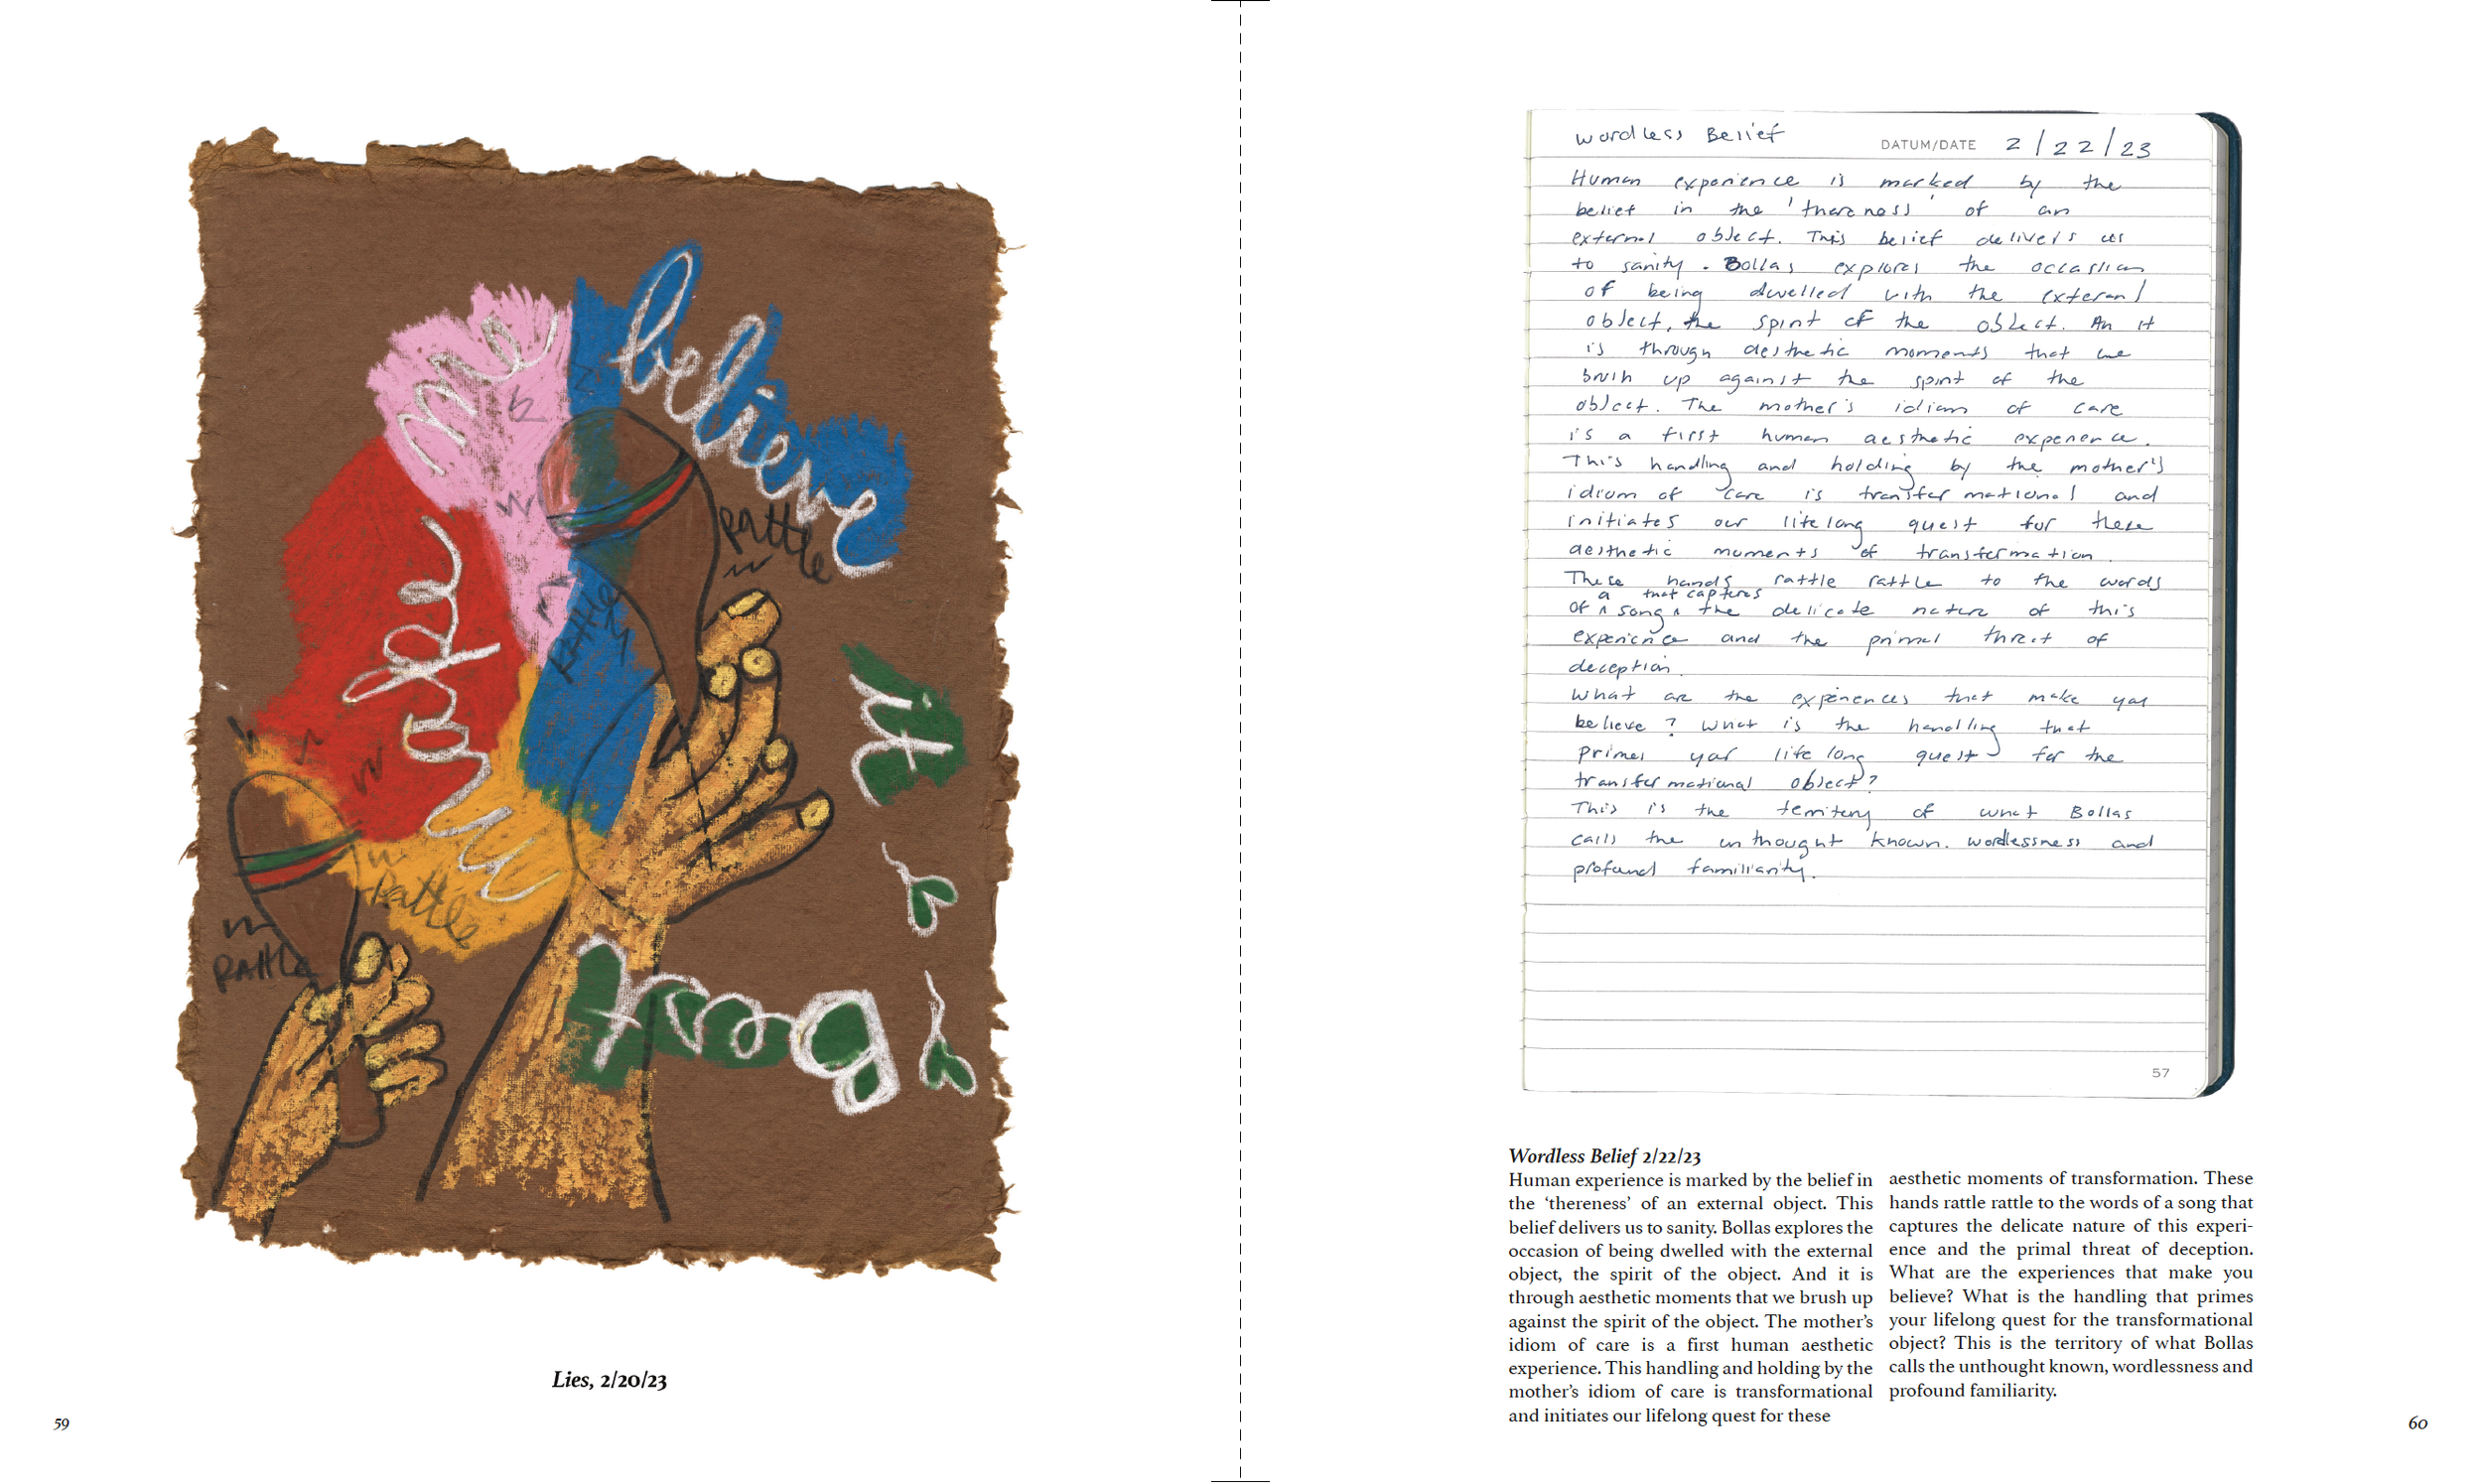 make
me
believe
it
!
!
Don't
Rattle
Rattle
Rattle
Rattle
Lies, 2/20/23
59
Wordless Belief DATUM/DATE 2/22/23
Human experience is marked by the
belief in the 'thereness' of an
external object. This belief delivers us
to sanity. Bollas explores the occasion
of being dwelled with the external
object, the spirit of the object. An it
is through aesthetic moments that we
brush up against the spirit of the
object. The mother's idiom of care
is a first human aesthetic experience.
This handling and holding by the mother's
idiom of care is transformational and
initiates our lifelong quest for these
aesthetic moments of transformation.
These hands rattle rattle to the words
of a song that captures the delicate nature of this
experience and the primal threat of
deception.
What are the experiences that make you
believe? What is the handling that
primes your life long quest for the
transformational object?
This is the territory of what Bollas
calls the unthought known. wordlessness and
profound familiarity.
57
Wordless Belief 2/22/23
Human experience is marked by the belief in
the ‘thereness’ of an external object. This
belief delivers us to sanity. Bollas explores the
occasion of being dwelled with the external
object, the spirit of the object. And it is
through aesthetic moments that we brush up
against the spirit of the object. The mother’s
idiom of care is a first human aesthetic
experience. This handling and holding by the
mother’s idiom of care is transformational
and initiates our lifelong quest for these
aesthetic moments of transformation. These
hands rattle rattle to the words of a song that
captures the delicate nature of this experi-
ence and the primal threat of deception.
What are the experiences that make you
believe? What is the handling that primes
your lifelong quest for the transformational
object? This is the territory of what Bollas
calls the unthought known, wordlessness and
profound familiarity.
60